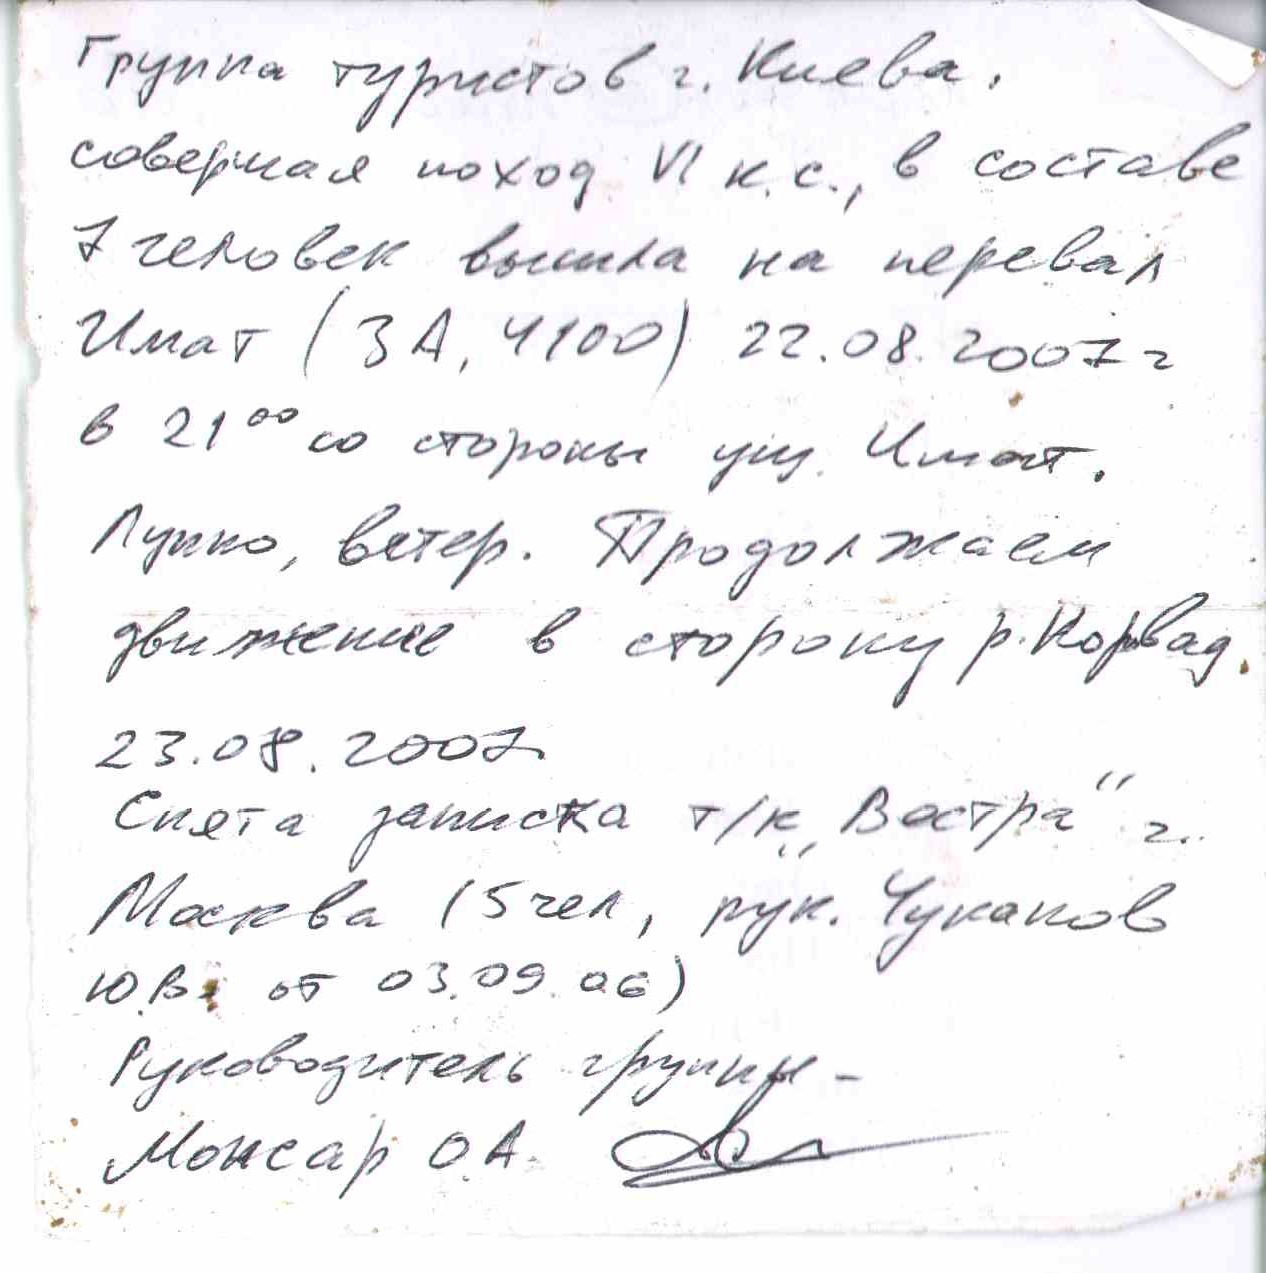 Группа туристов г. Киева,
совершая поход VI к.с., в составе
7 человек вышла на перевал
Имат (3А, 4100) 22.08.2007 г
в 21⁰⁰ со стороны ущ. Имат.
Лунно, ветер. Продолжаем
движение в сторону р. Корвад.
23.08.2007
Снята записка т/к „Востра“ г.
Москва (5 чел, рук. Чуканов
Ю.В. от 03.09.06)
Руководитель группы –
О.А.